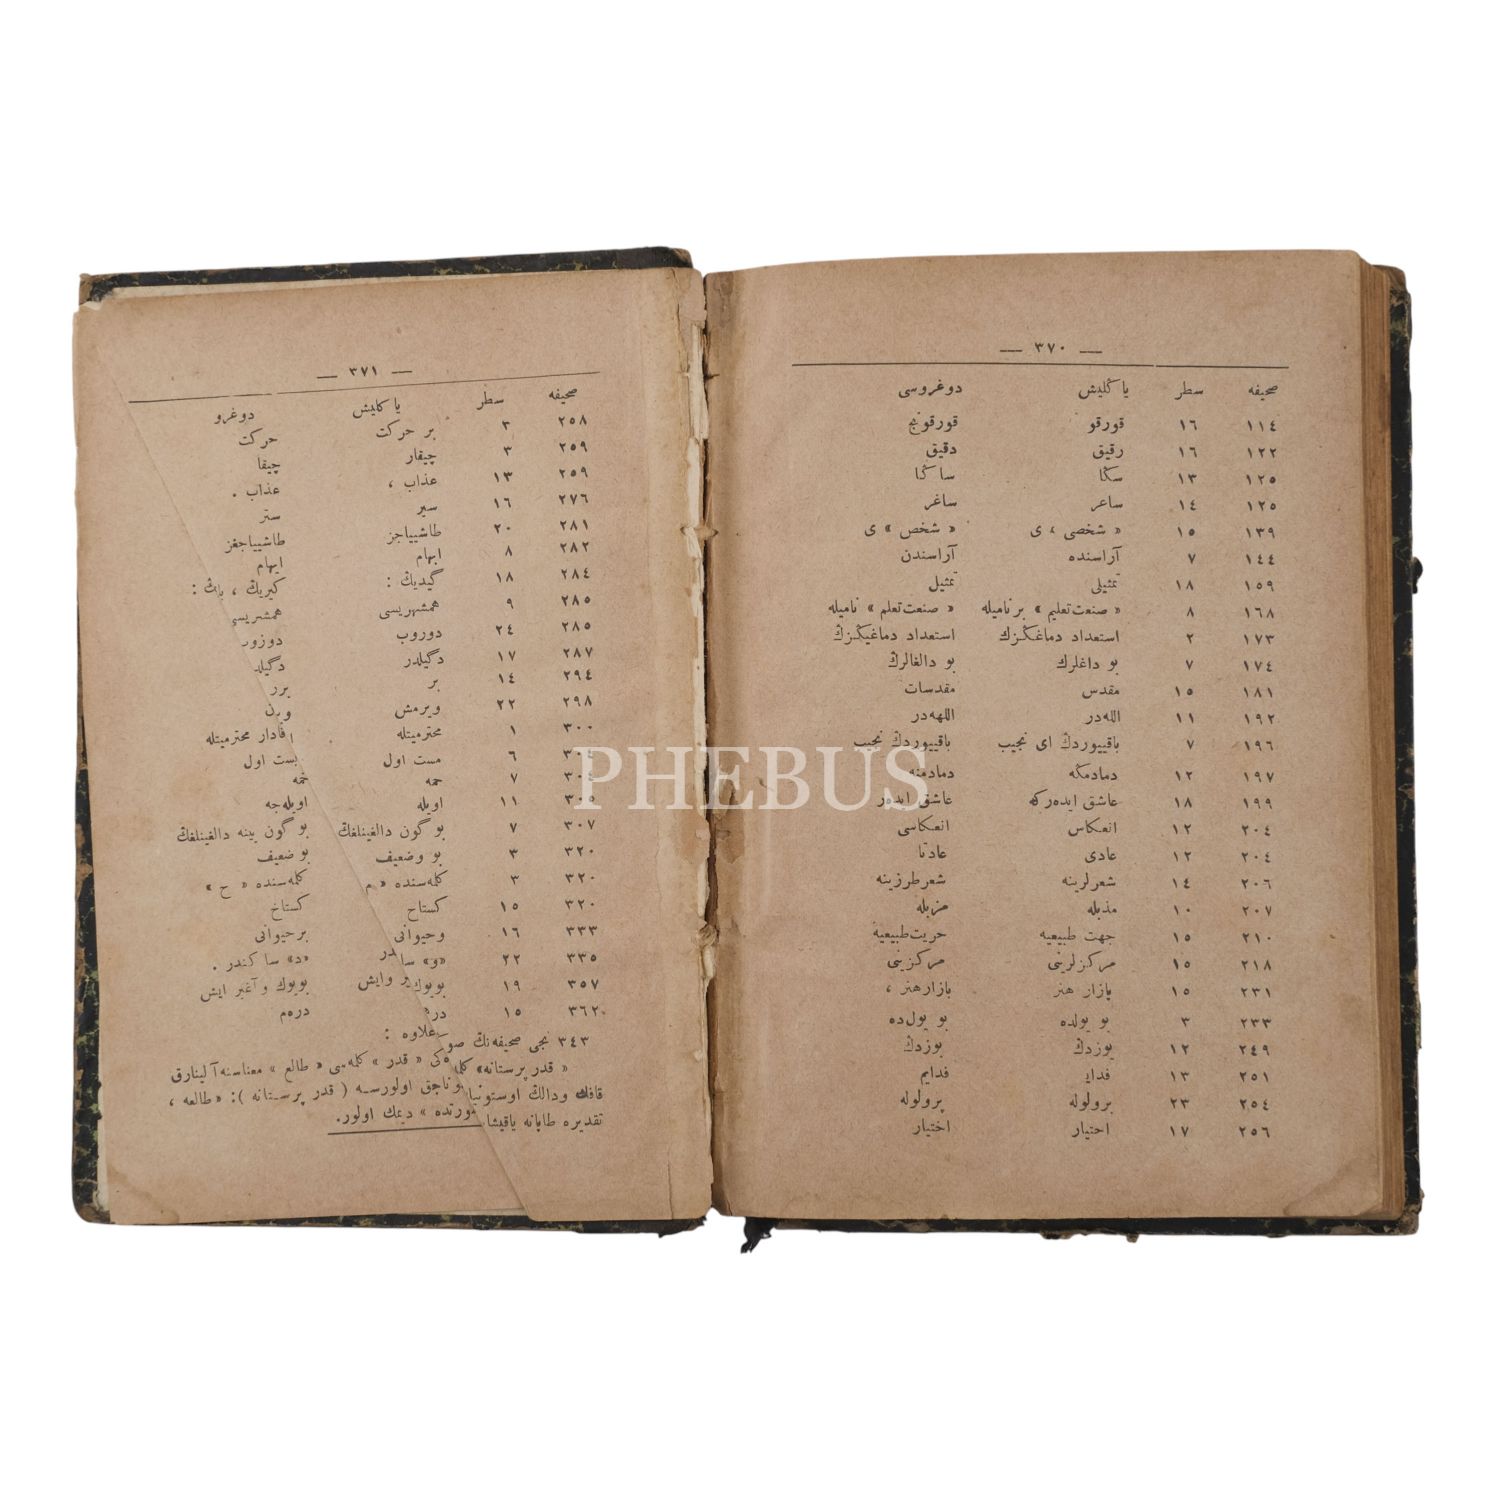 — ٣٧٠ —
صحيفه سطر ياڭليش دوغروسى
١١٤ ١٦ قورقو قورقونج
١٢٢ ١٦ رقيق دقيق
١٢٥ ١٣ سڭا ساڭا
١٢٥ ١٤ ساعر ساغر
١٣٩ ١٥ « شخصى ، ى « شخص » ى
١٤٤ ٧ آراسنده آراسندن
١٥٩ ١٨ تمثيلى تمثيل
١٦٨ ٨ « صنعت تعليم » برناميله « صنعت تعلم » ناميله
١٧٣ ٢ استعداد دماغڭزك استعداد دماغيڭزڭ
١٧٤ ٧ بو داغلرڭ بو دالغالرڭ
١٨١ ١٥ مقدس مقدسات
١٩٢ ١١ الله‌در اللهه‌در
١٩٦ ٧ باقييوردڭ اى نجيب باقييوردڭ نجيب
١٩٧ ١٢ دمادمكه دمادمنه
١٩٩ ١٨ عاشق ايده‌ركه عاشق ايده‌ر
٢٠٤ ١٢ انعكاس انعكاسى
٢٠٤ ١٢ عادى عادتا
٢٠٦ ١٤ شعرلرينه شعرطرزينه
٢٠٧ ١٠ مذبله مزبله
٢١٠ ١٥ جهت طبيعيه حريت‌طبيعيه
٢١٨ ١٥ مركزلرينى مركزينى
٢٣١ ١٥ پازار هنر بازارهنر ،
٢٣٣ ٣ بو يولده بو يول‌ده
٢٤٩ ١٢ يوزدڭ بوزدڭ
٢٥١ ١٣ فدايـ فدايم
٢٥٤ ٢٣ برولوله پرولوله
٢٥٦ ١٧ احتيار اختيار
— ٣٧١ —
صحيفه سطر ياكليش دوغرو
٢٥٨ ٣ بر حركت حركت
٢٥٩ ٣ چيقار چيقا
٢٥٩ ١٣ عذاب ، عذاب .
٢٧٦ ١٦ سير ستر
٢٨١ ٢٠ طاشيياجز طاشيياجغز
٢٨٢ ٨ ابهام ايهام
٢٨٤ ١٨ گيديڭ : كيريڭ ، باڭ :
٢٨٥ ٩ همشهريسى همشريسى
٢٨٥ ٢٤ دوروب دوزوب
٢٨٧ ١٧ دگيلدر دگيلد
٢٩٤ ١٤ بر برر
٢٩٨ ٢٢ ويرمش ويرن
٣٠٠ ١ محترميتله اقدار محترميتله
٣٠٤ ٦ مست اول بست اول
٣٠٤ ٧ حمه خمه
٣٠٥ ١١ اويله اويله‌جه
٣٠٧ ٧ بو گون دالغينلغڭ بو گون يينه دالغينلغڭ
٣٢٠ ٣ بو وضعيف بو ضعيف
٣٢٠ ٣ كله‌سنده « م كله‌سنده « ح »
٣٢٠ ١٥ كستاح كستاخ
٣٣٣ ١٦ وحيوانى برحيوانى
٣٣٥ ٢٢ «و» سا در «د» سا كندر .
٣٥٧ ١٩ بويوك وايش بويوك و آغير ايش
٣٦٢ ١٥ دره دره‌م
٣٤٣ نجى صحيفه‌نڭ صو علاوه :
« قدر پرستانه» كله كى « قدر » كله‌سى « طالع » معناسنه آلينارق
قافك ودالڭ اوستونيا وناجق اولورسه ( قدر پرستانه ) : « طالعه ،
تقديره طاپانه ياقيشا صورتده » ديمك اولور.
PHEBUS